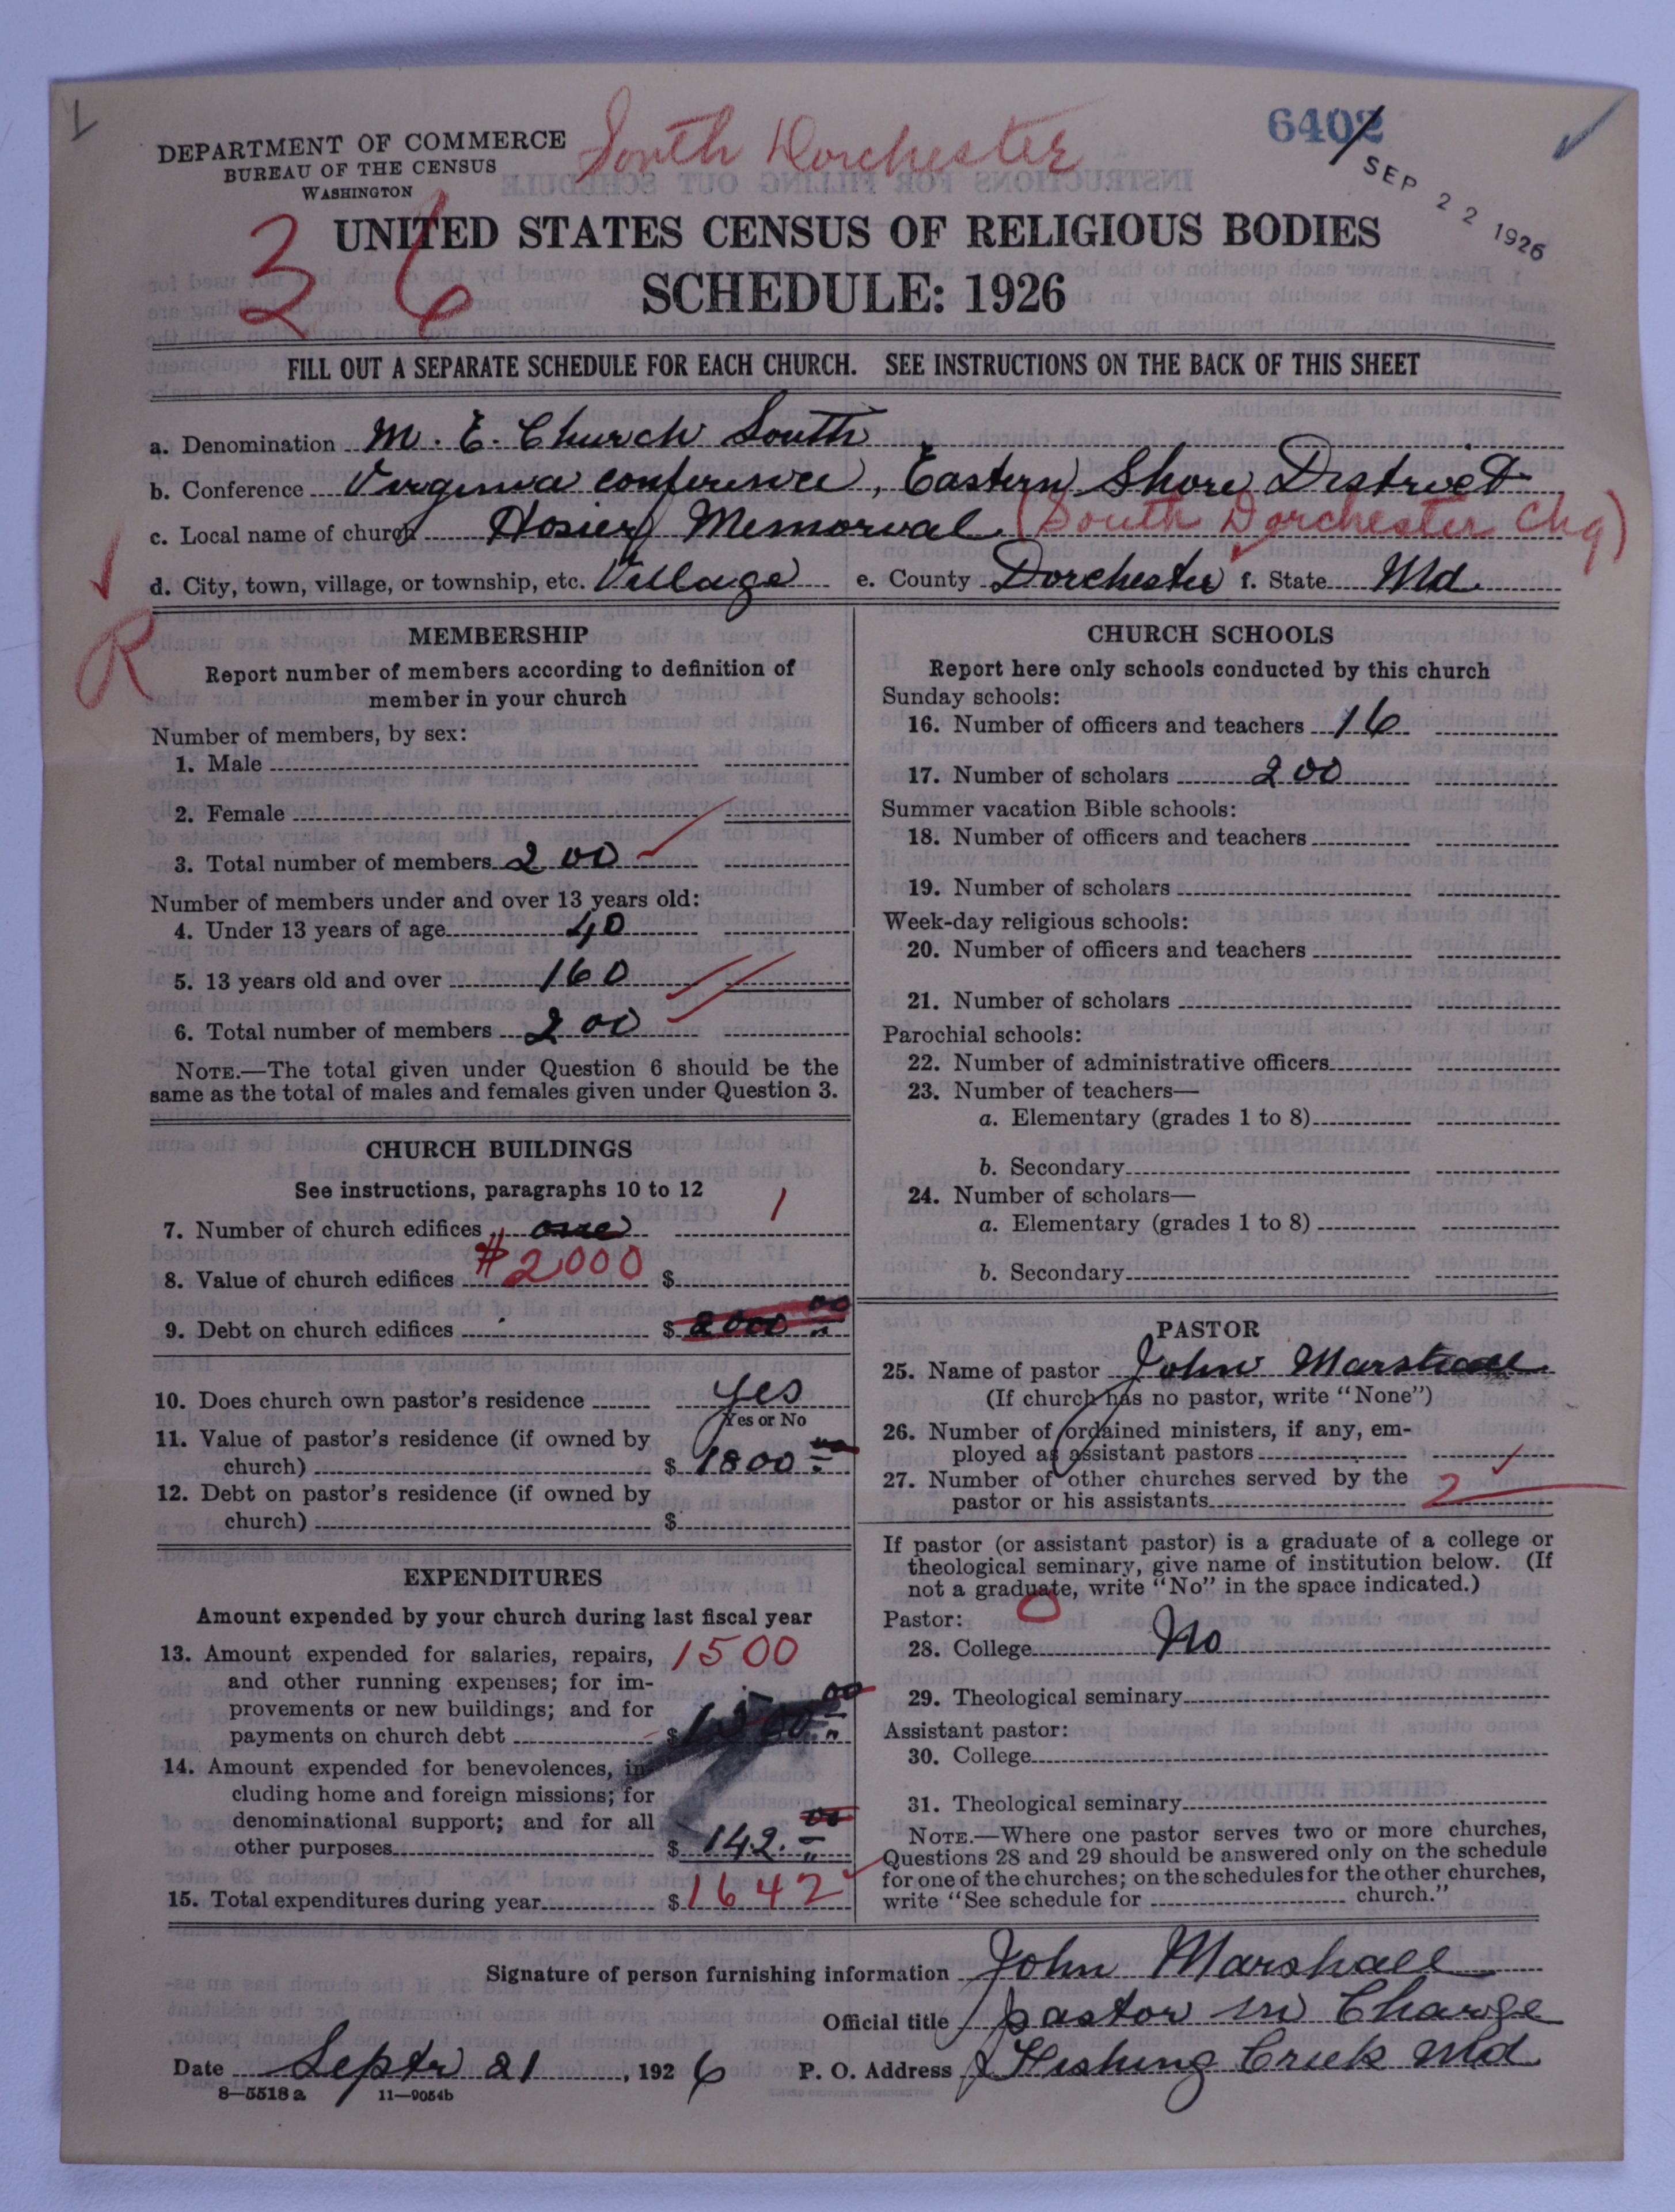 1
DEPARTMENT OF COMMERCE
BUREAU OF THE CENSUS
WASHINGTON
South Dorchester
6402
SEP 22 1926
36
UNITED STATES CENSUS OF RELIGIOUS BODIES
SCHEDULE: 1926
FILL OUT A SEPARATE SCHEDULE FOR EACH CHURCH. SEE INSTRUCTIONS ON THE BACK OF THIS SHEET
a. Denomination M. E. Church South
b. Conference Virginia conference, Eastern Shore District
c. Local name of church Hosier Memorial (South Dorchester Chg)
d. City, town, village, or township, etc. Village e. County Dorchester f. State Md.
R
MEMBERSHIP
Report number of members according to definition of
member in your church
Number of members, by sex:
1. Male
2. Female
3. Total number of members 200
Number of members under and over 13 years old:
4. Under 13 years of age 40
5. 13 years old and over 160
6. Total number of members 200
NOTE.—The total given under Question 6 should be the
same as the total of males and females given under Question 3.
CHURCH BUILDINGS
See instructions, paragraphs 10 to 12
7. Number of church edifices one 1
8. Value of church edifices #2000 $
9. Debt on church edifices $ 2000 00
10. Does church own pastor's residence yes
Yes or No
11. Value of pastor's residence (if owned by
church) $ 1800
12. Debt on pastor's residence (if owned by
church) $
EXPENDITURES
Amount expended by your church during last fiscal year
13. Amount expended for salaries, repairs, 1500
and other running expenses; for im-
provements or new buildings; and for
payments on church debt $ 00
14. Amount expended for benevolences, in-
cluding home and foreign missions; for
denominational support; and for all
other purposes $ 142. 00
15. Total expenditures during year $ 1642
CHURCH SCHOOLS
Report here only schools conducted by this church
Sunday schools:
16. Number of officers and teachers 16
17. Number of scholars 200
Summer vacation Bible schools:
18. Number of officers and teachers
19. Number of scholars
Week-day religious schools:
20. Number of officers and teachers
21. Number of scholars
Parochial schools:
22. Number of administrative officers
23. Number of teachers—
a. Elementary (grades 1 to 8)
b. Secondary
24. Number of scholars—
a. Elementary (grades 1 to 8)
b. Secondary
PASTOR
25. Name of pastor John Marshall
(If church has no pastor, write "None")
26. Number of ordained ministers, if any, em-
ployed as assistant pastors
27. Number of other churches served by the
pastor or his assistants 2
If pastor (or assistant pastor) is a graduate of a college or
theological seminary, give name of institution below. (If
not a graduate, write "No" in the space indicated.)
Pastor: 0
28. College No
29. Theological seminary
Assistant pastor:
30. College
31. Theological seminary
NOTE.—Where one pastor serves two or more churches,
Questions 28 and 29 should be answered only on the schedule
for one of the churches; on the schedules for the other churches,
write "See schedule for church."
Signature of person furnishing information John Marshall
Official title pastor in Charge
Date Septr 21, 1926 P. O. Address Fishing Creek Md.
8—5518 a 11—9054b